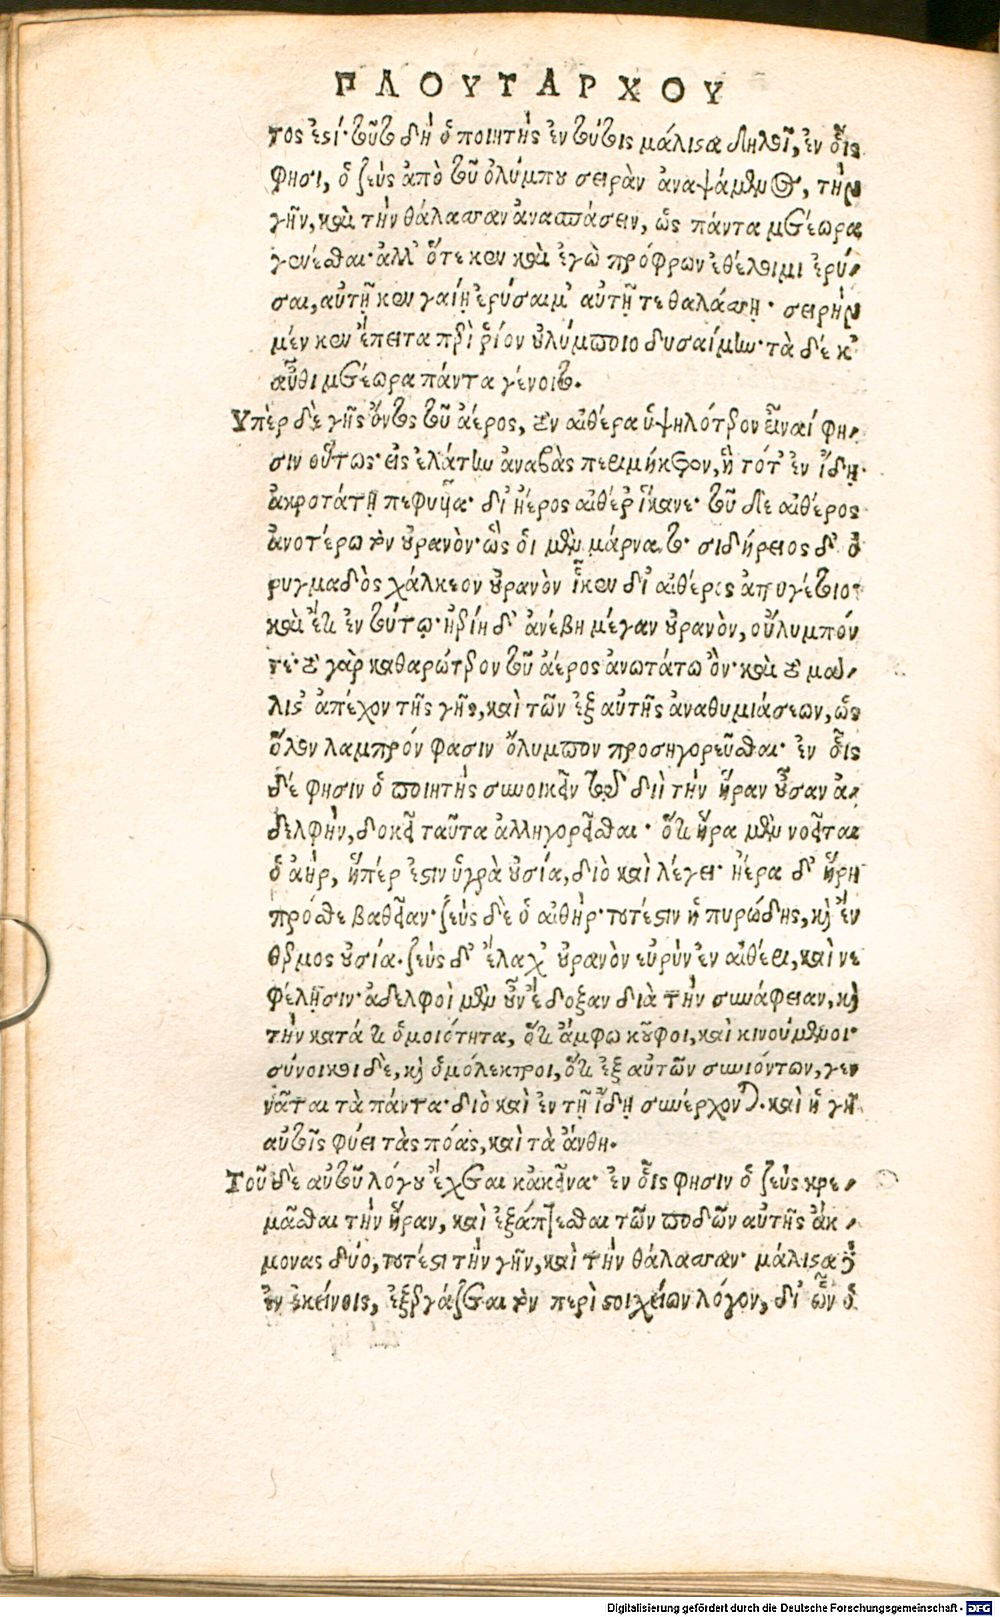 ΠΛΟΥΤΑΡΧΟΥ
τός ἐστί· τοῦτο δὴ ὁ ποιητὴς ἐν τούτοις μάλιστα δηλοῖ, ἐν οἷς
φησι, ὁ ζεὺς ἀπὸ τοῦ ὀλύμπου σειρὰν ἀναψάμενος, τὴν
γῆν, καὶ τὴν θάλασσαν ἀνασπάσειν, ὡς πάντα μετέωρα
γενέσθαι· ἀλλ' ὅτε κεν καὶ ἐγὼ πρόφρων ἐθέλοιμι ἐρύ-
σαι, αὐτῇ κεν γαίῃ ἐρύσαιμ' αὐτῇ τε θαλάσσῃ· σειρὴν
μέν κεν ἔπειτα περὶ ῥίον οὐλύμποιο δησαίμην· τὰ δέ κ'
αὖθι μετέωρα πάντα γένοιτο.
Υπὲρ δὲ γῆς ὄντος τοῦ ἀέρος, τὸν αἰθέρα ὑψηλότερον εἶναί φη-
σιν οὕτως· εἰς ἐλάτην ἀναβὰς περιμήκετον, ἣ τότ' ἐν ἴδῃ·
ἀκροτάτῃ πεφυῖα· δι' ἠέρος αἰθέρ' ἵκανε· τοῦ δὲ αἰθέρος
ἀνοτέρω τὸν οὐρανὸν· ὣς οἱ μὲν μάρναντο· σιδήρειος δ' ὀ
ρυγμαδὸς χάλκεον οὐρανὸν ἷκεν δι' αἰθέρος ἀτρυγέτοιο·
καὶ ἔτι ἐν τούτῳ· ἠερίη δ' ἀνέβη μέγαν οὐρανὸν, οὔλυμπόν
τε· τὸ γὰρ καθαρώτερον τοῦ ἀέρος ἀνωτάτω ὂν· καὶ τὸ μά-
λιστ' ἀπέχον τῆς γῆς, καὶ τῶν ἐξ αὐτῆς ἀναθυμιάσεων, ὡς
ὅλον λαμπρόν φασιν ὄλυμπον προσηγορεῦσθαι· ἐν οἷς
δέ φησιν ὁ ποιητὴς συνοικεῖν τῷ διὶ τὴν ἥραν οὖσαν ἀ-
δελφήν, δοκεῖ ταῦτα ἀλληγορεῖσθαι· ὅτι ἥρα μὲν νοεῖται
ὁ ἀὴρ, ἥπέρ ἐστιν ὑγρὰ οὐσία, διὸ καὶ λέγει· ἠέρα δ' ἥρη
πρόσθε βαθεῖαν· ζεὺς δὲ ὁ αἰθὴρ· τουτέστιν ἡ πυρώδης, καὶ ἔν
θερμος οὐσία. ζεὺς δ' ἔλαχ' οὐρανὸν εὐρὺν ἐν αἰθέρι, καὶ νε
φέλῃσιν· ἀδελφοὶ μὲν οὖν ἔδοξαν διὰ τὴν συνάφειαν, καὶ
τὴν κατά τι ὁμοιότητα, ὅτι ἄμφω κοῦφοι, καὶ κινούμενοι·
σύνοικοι δὲ, καὶ ὁμόλεκτροι, ὅτι ἐξ αὐτῶν συνιόντων, γεν
νᾶται τὰ πάντα· διὸ καὶ ἐν τῇ ἴδῃ συνέρχονται. καὶ ἡ γῆ
αὐτοῖς φύει τὰς πόας, καὶ τὰ ἄνθη.
Τοῦ δὲ αὐτοῦ λόγου ἔχεται κἀκεῖνα· ἐν οἷς φησιν ὁ ζεὺς κρε-
μᾶσθαι τὴν ἥραν, καὶ ἐξάπτεσθαι τῶν ποδῶν αὐτῆς ἄκ-
μονας δύο, τουτέστι τὴν γῆν, καὶ τὴν θάλασσαν· μάλιστα δὲ
ἐν ἐκείνοις, ἐξεργάζεται τὸν περὶ στοιχείων λόγον, δι' ὧν ὁ
Digitalisierung gefördert durch die Deutsche Forschungsgemeinschaft - DFG